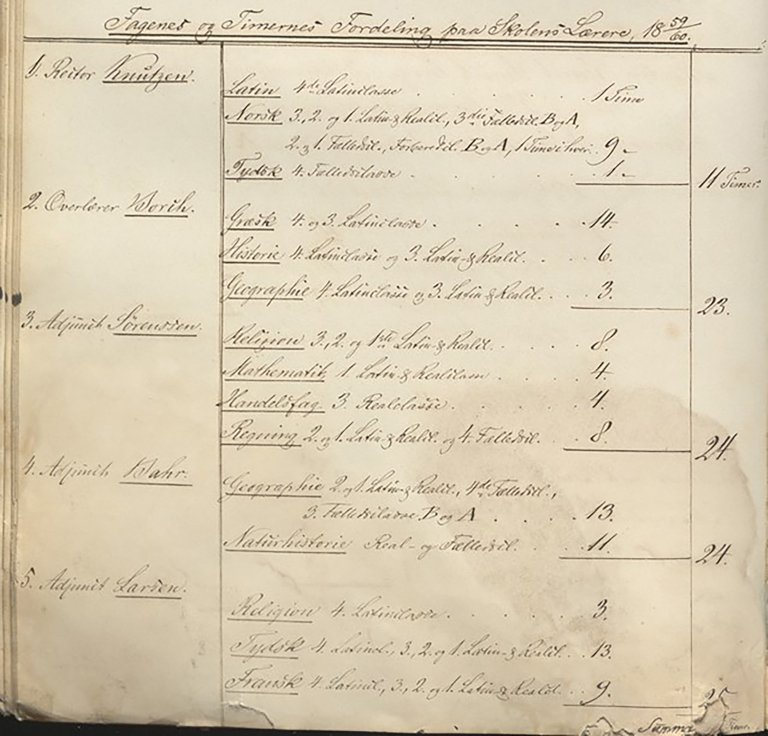 Fagenes og Timernes Fordeling paa Skolens Lærere, 18 59/60.
1. Rector Knutzen.
Latin 4de Latinclasse . . . 1 Time
Norsk 3., 2. og 1. Latin- & Realcl., 3die Fællescl. B og A,
2. og 1. Fællescl., Forberedcl. B og A, 1 Time i hver. 9 -
Tydsk 4. Fællesclasse . . . 1. - 11 Timer.
2. Overlærer Borch.
Græsk 4. og 3. Latinclasse . . . 14.
Historie 4. Latinclasse og 3. Latin- & Realcl. . . 6.
Geographie 4. Latinclasse og 3. Latin- & Realcl. . . 3. 23.
3. Adjunct Sørenssen.
Religion 3., 2. og 1ste Latin- & Realcl. . . . 8.
Mathematik 1. Latin- & Realclasse . . . 4.
Handelsfag 3. Realclasse . . . 4.
Regning 2. og 1. Latin- & Realcl. og 4. Fællescl. . . 8. 24.
4. Adjunct Bahr.
Geographie 2. og 1. Latin- & Realcl., 4de Fællescl.,
3. Fællesclasse B og A . . . 13.
Naturhistorie Real- og Fællescl. . . . 11. 24.
5. Adjunct Larsen.
Religion 4. Latinclasse . . . 3.
Tydsk 4. Latincl., 3., 2. og 1. Latin- & Realcl. . . 13.
Fransk 4. Latincl., 3., 2. og 1. Latin- & Realcl. . . 9. 25
Summa Timer